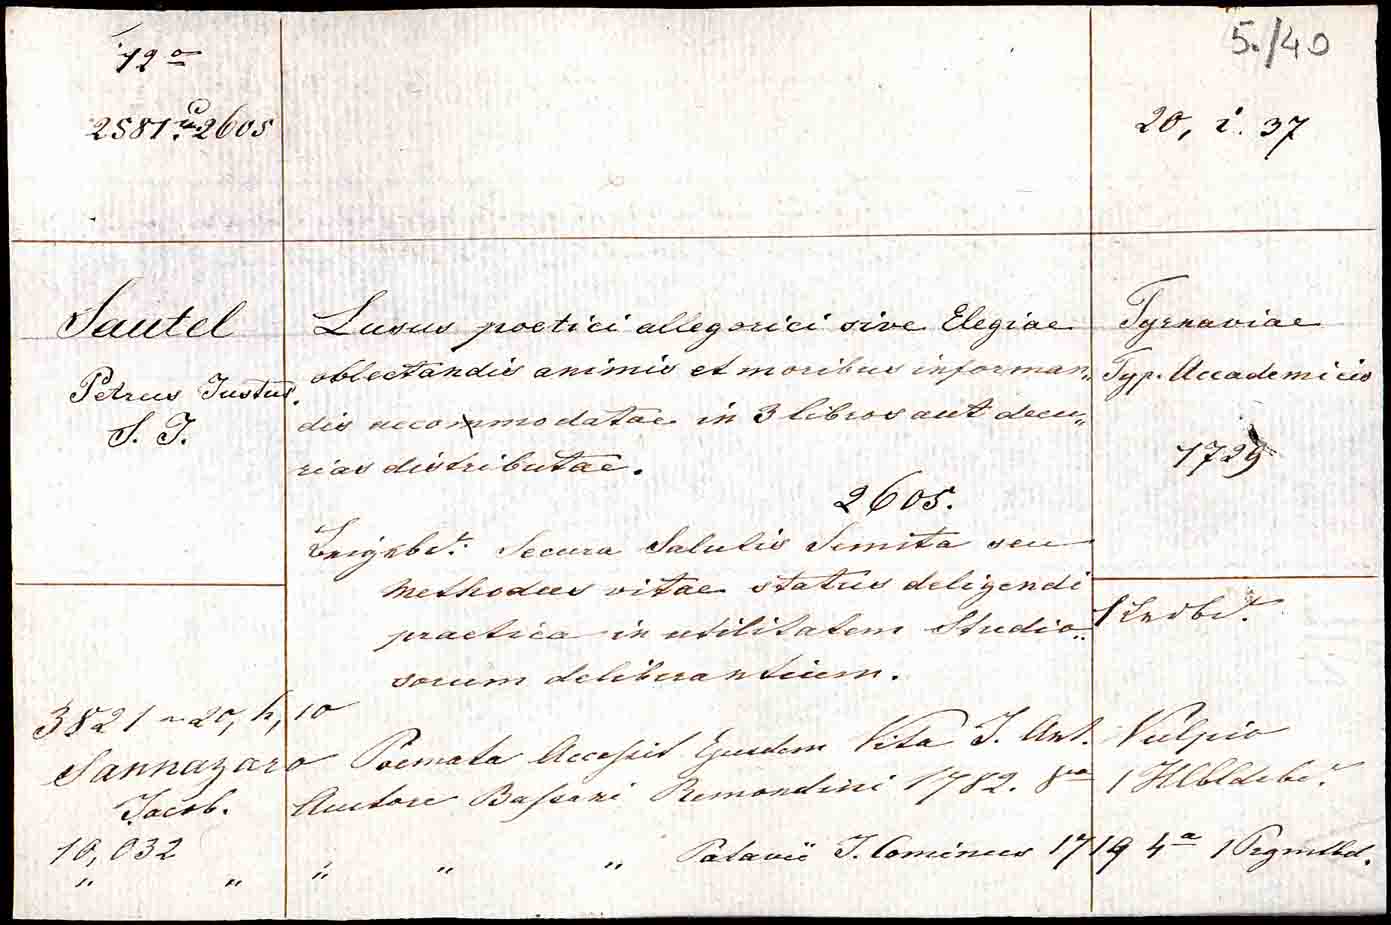 12º
5./40
2581 2605
20, i. 37
Sautel
Petrus Justus.
S. J.
Lusus poetici allegorici sive Elegiae
oblectandis animis et moribus informan„
dis accommodatae in 3 libros aut decu„
rias distributae.
Tyrnaviae
Typ. Accademicis
1729
2605.
Beigeb.: Secura Salutis Semita seu
Methodus vitae status deligendi
practica in utilitatem Studio„
sorum deliberantium.
1 Ledbd.
3821 20, h, 10
Sannazaro Poemata Accessit Ejusdem Vita J. Ant. Vulpio
Jacob. Auctore Bassani Remondini 1782. 8vo 1 Hlbldrbd.
10,032
„ „ „ „ „ Patavii J. Cominus 1719 4º 1 Prgmtbd.